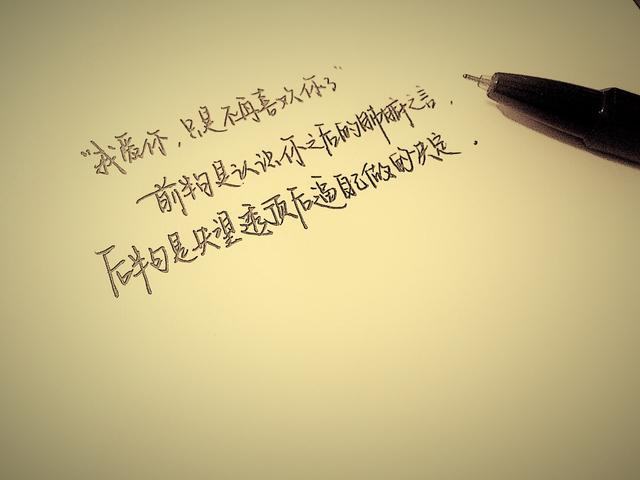 “我爱你，只是不再喜欢你了”
前半句是认识你之后的肺腑之言．
后半句是失望透顶后逼自己做的决定．